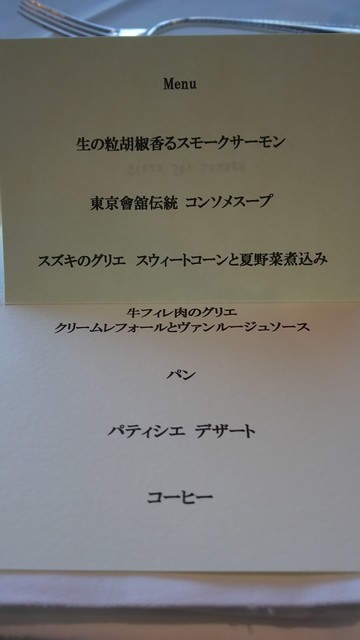 Menu
生の粒胡椒香るスモークサーモン
東京會舘伝統 コンソメスープ
スズキのグリエ スウィートコーンと夏野菜煮込み
牛フィレ肉のグリエ
クリームレフォールとヴァンルージュソース
パン
パティシエ デザート
コーヒー